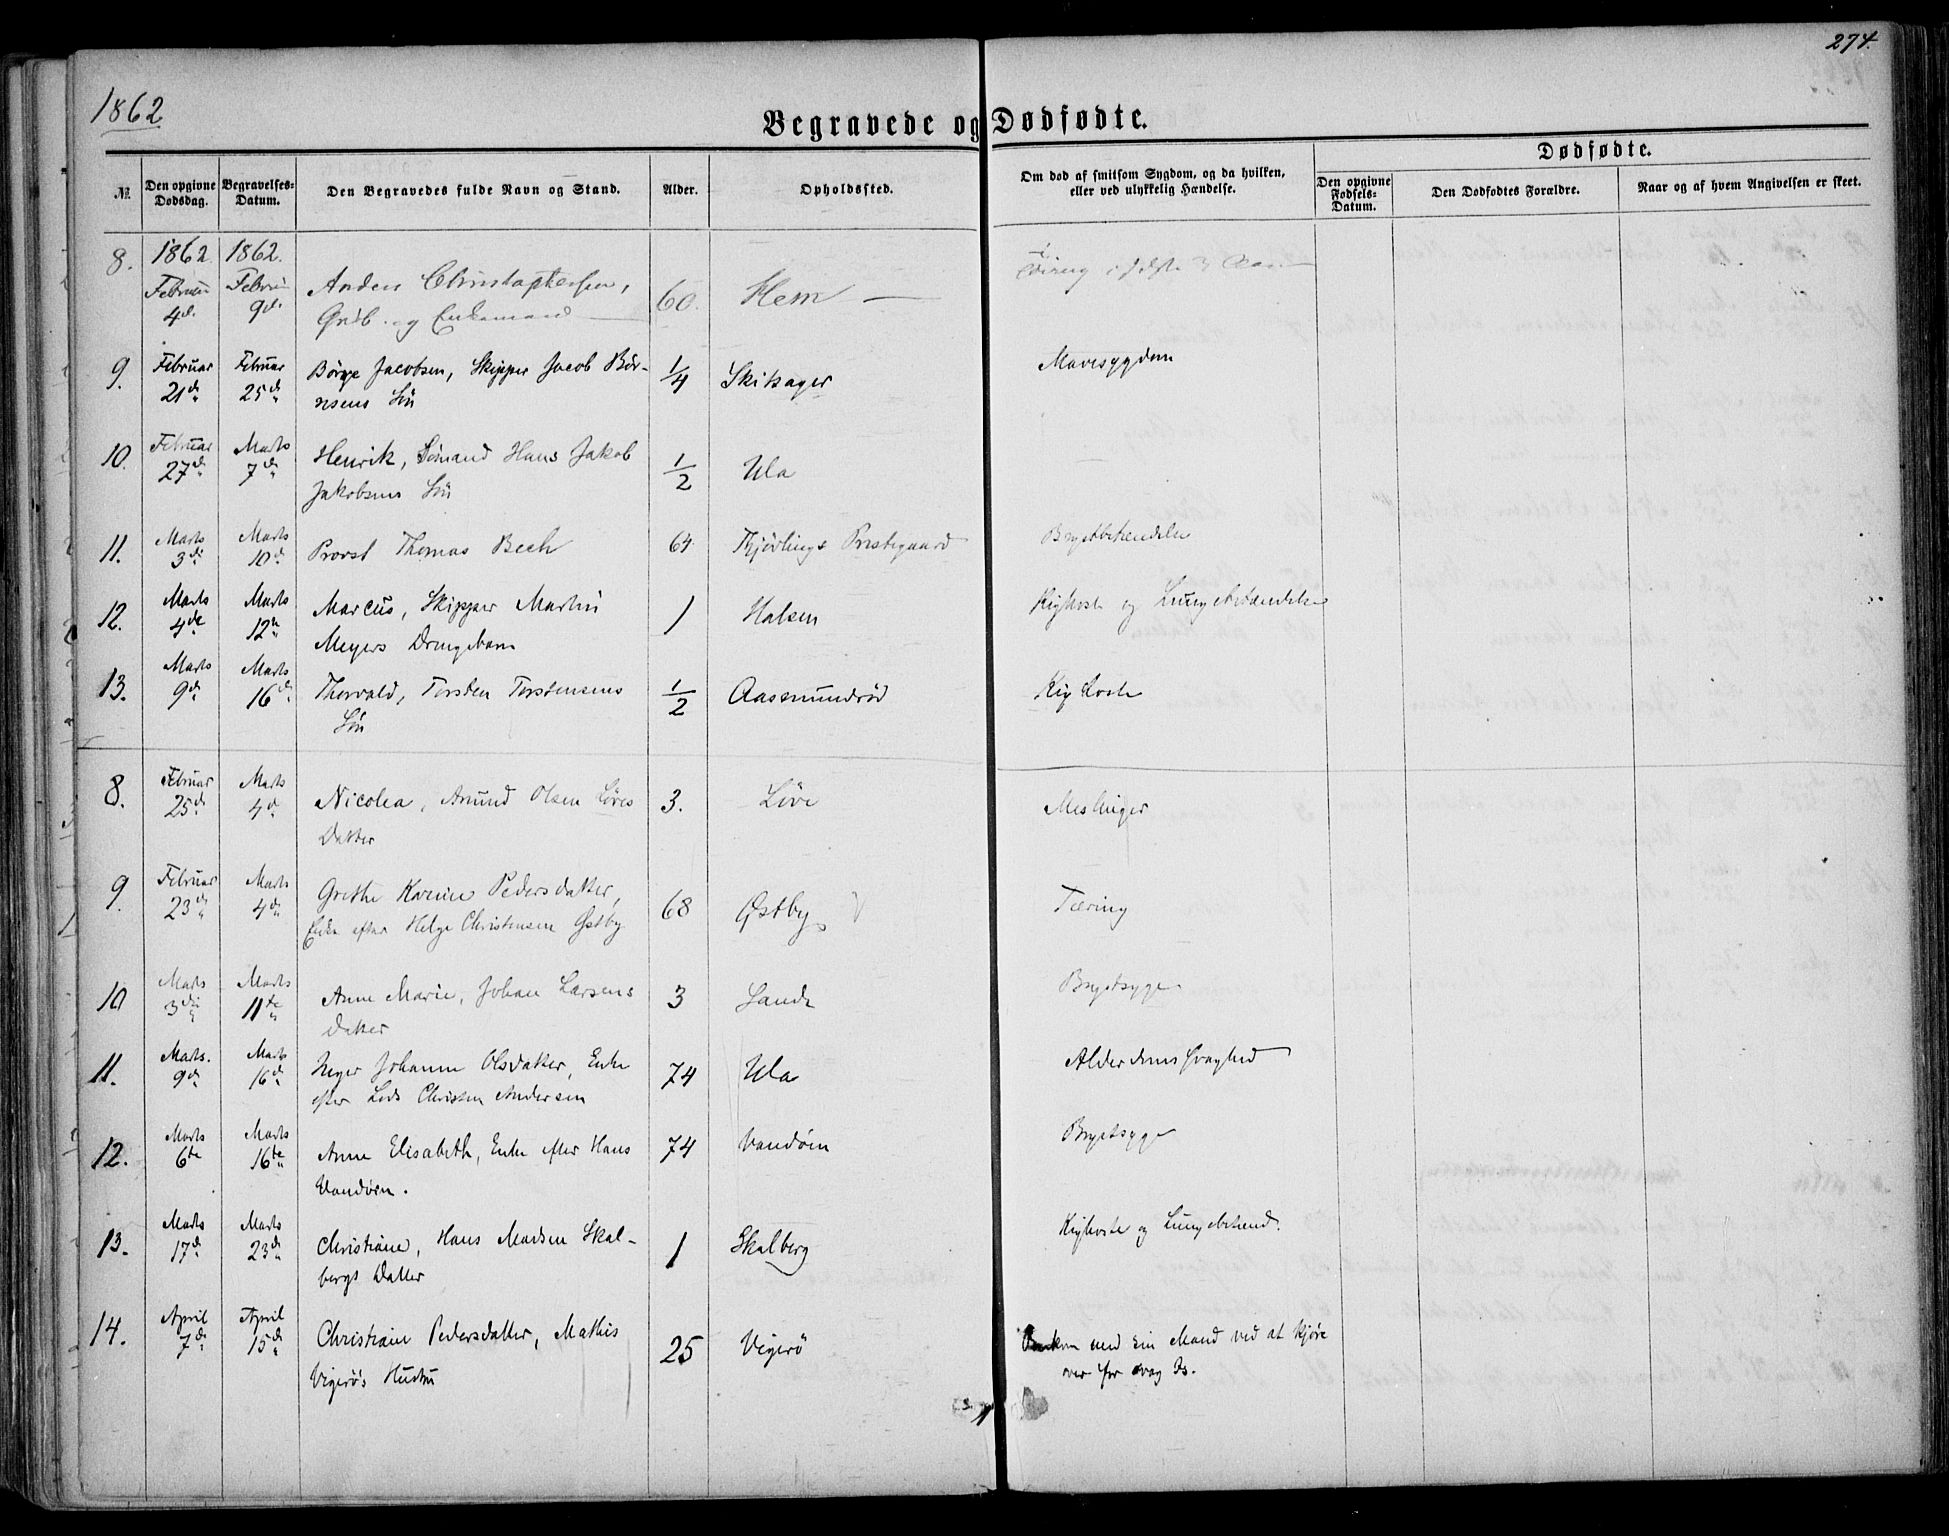 274.
1862
Begravede og Dødfødte.
Dødfødte.
№
Den opgivne Dødsdag.
Begravelses-Datum.
Den Begravedes fulde Navn og Stand.
Alder.
Opholdssted.
Om død af smitsom Sygdom, og da hvilken, eller ved ulykkelig Hændelse.
Den opgivne Fødsels-Datum.
Den Dødfødtes Forældre.
Naar og af hvem Angivelsen er skeet.
8. 1862. 1862.
Februar 4d. Februar 9de Anders Christophersen, 60. Hem
og Enkemand
9. Februar 21de Februar 25de Børge Jacobsen, Skipper Jacob Bør- 1/4 Skisager Mavesygdom
resens Søn
10. Februar 27de Marts 7de Henrik, Sömand Hans Jakob 1/2 Ula
Jakobsens Søn
11. Marts 3die Marts 10de Provst Thomas Bech 64 Tjødlings Prestegaard Brystbetændelse
12. Marts 4de Marts 12te Marcus, Skipper Martin 1 Halsen Kighoste og Lungebetændelse
Meyers Drengebarn
13. Marts 9de Marts 16de Thorvald, Torsten Torstensens 1/2 Aasmundrød Kighoste
Søn
8. Februar 25de Marts 4de Nicolea, Amund Olsen Löves 3. Löve Meslinger
Datter
9. Februar 23de Marts 4de Grethe Karine Pedersdatter, 68 Østby Tæring
Enke efter Helge Christensen Østby
10 Marts 3die Marts 11te Anne Marie, Johan Larsens 3 Sande Brystsyge
Datter
11. Marts. 9de Marts 16de Inger Johanne Olsdatter, Enke 74 Ula Alderdomssvaghed
efter Lods Christen Andersen
12. Marts 6te Marts 16te Anne Elisabeth, Enke efter Hans 74 Vandörn Brystsyge
Vandörn.
13. Marts 17de Marts 23de Christiane, Hans Madsen Skal- 1 Skalberg Kighoste og Lungebetænd.
bergs Datter
14. April 7de April 15de Christiane Pedersdatter, Mathis 25 Vigerø Omkom med sin Mand ved at kjøre
Vigerø's Hustru over for svag Is.